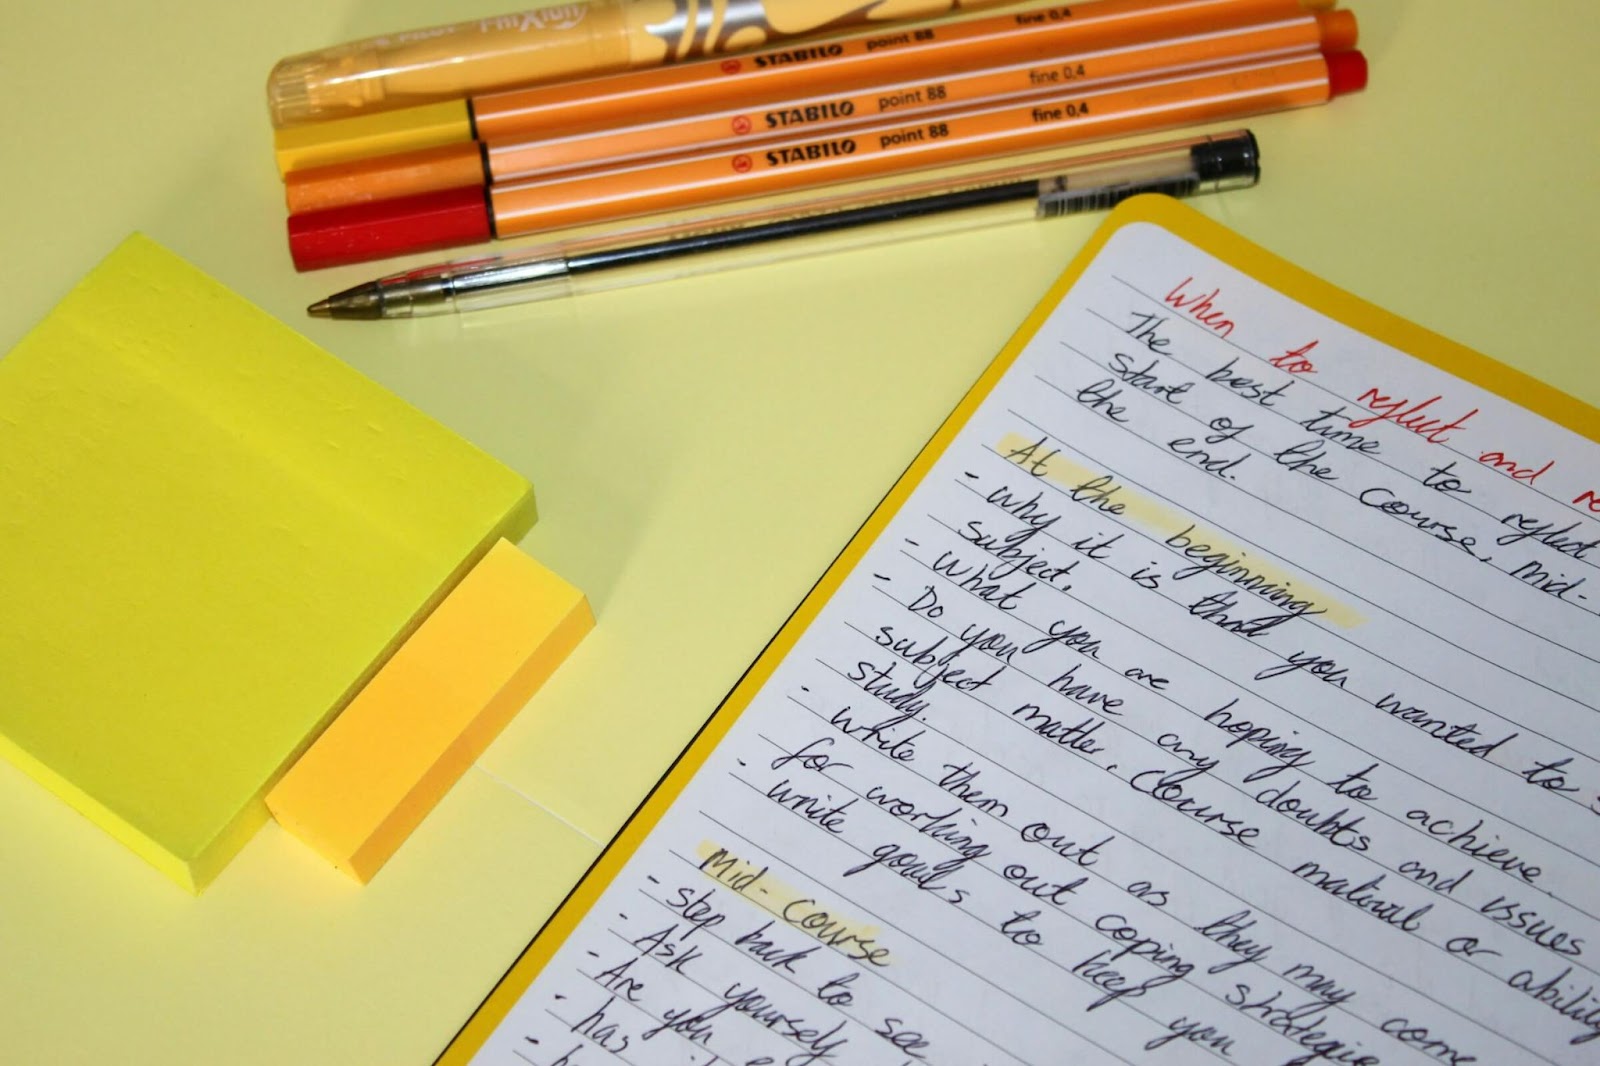 PILOT FriXion
STABILO point 88 fine 0,4
STABILO point 88 fine 0,4
STABILO point 88 fine 0,4
When to reflect and re
The best time to reflect
start of the course, mid-
the end.
At the beginning
- why it is that you wanted to
subject.
- what you are hoping to achieve.
- Do you have any doubts and issues
subject matter, course material or ability
study.
- write them out as they may come
for working out coping strategie
- write goals to keep you
Mid-course
- step back to see
- Ask yourself
- Are you
- has